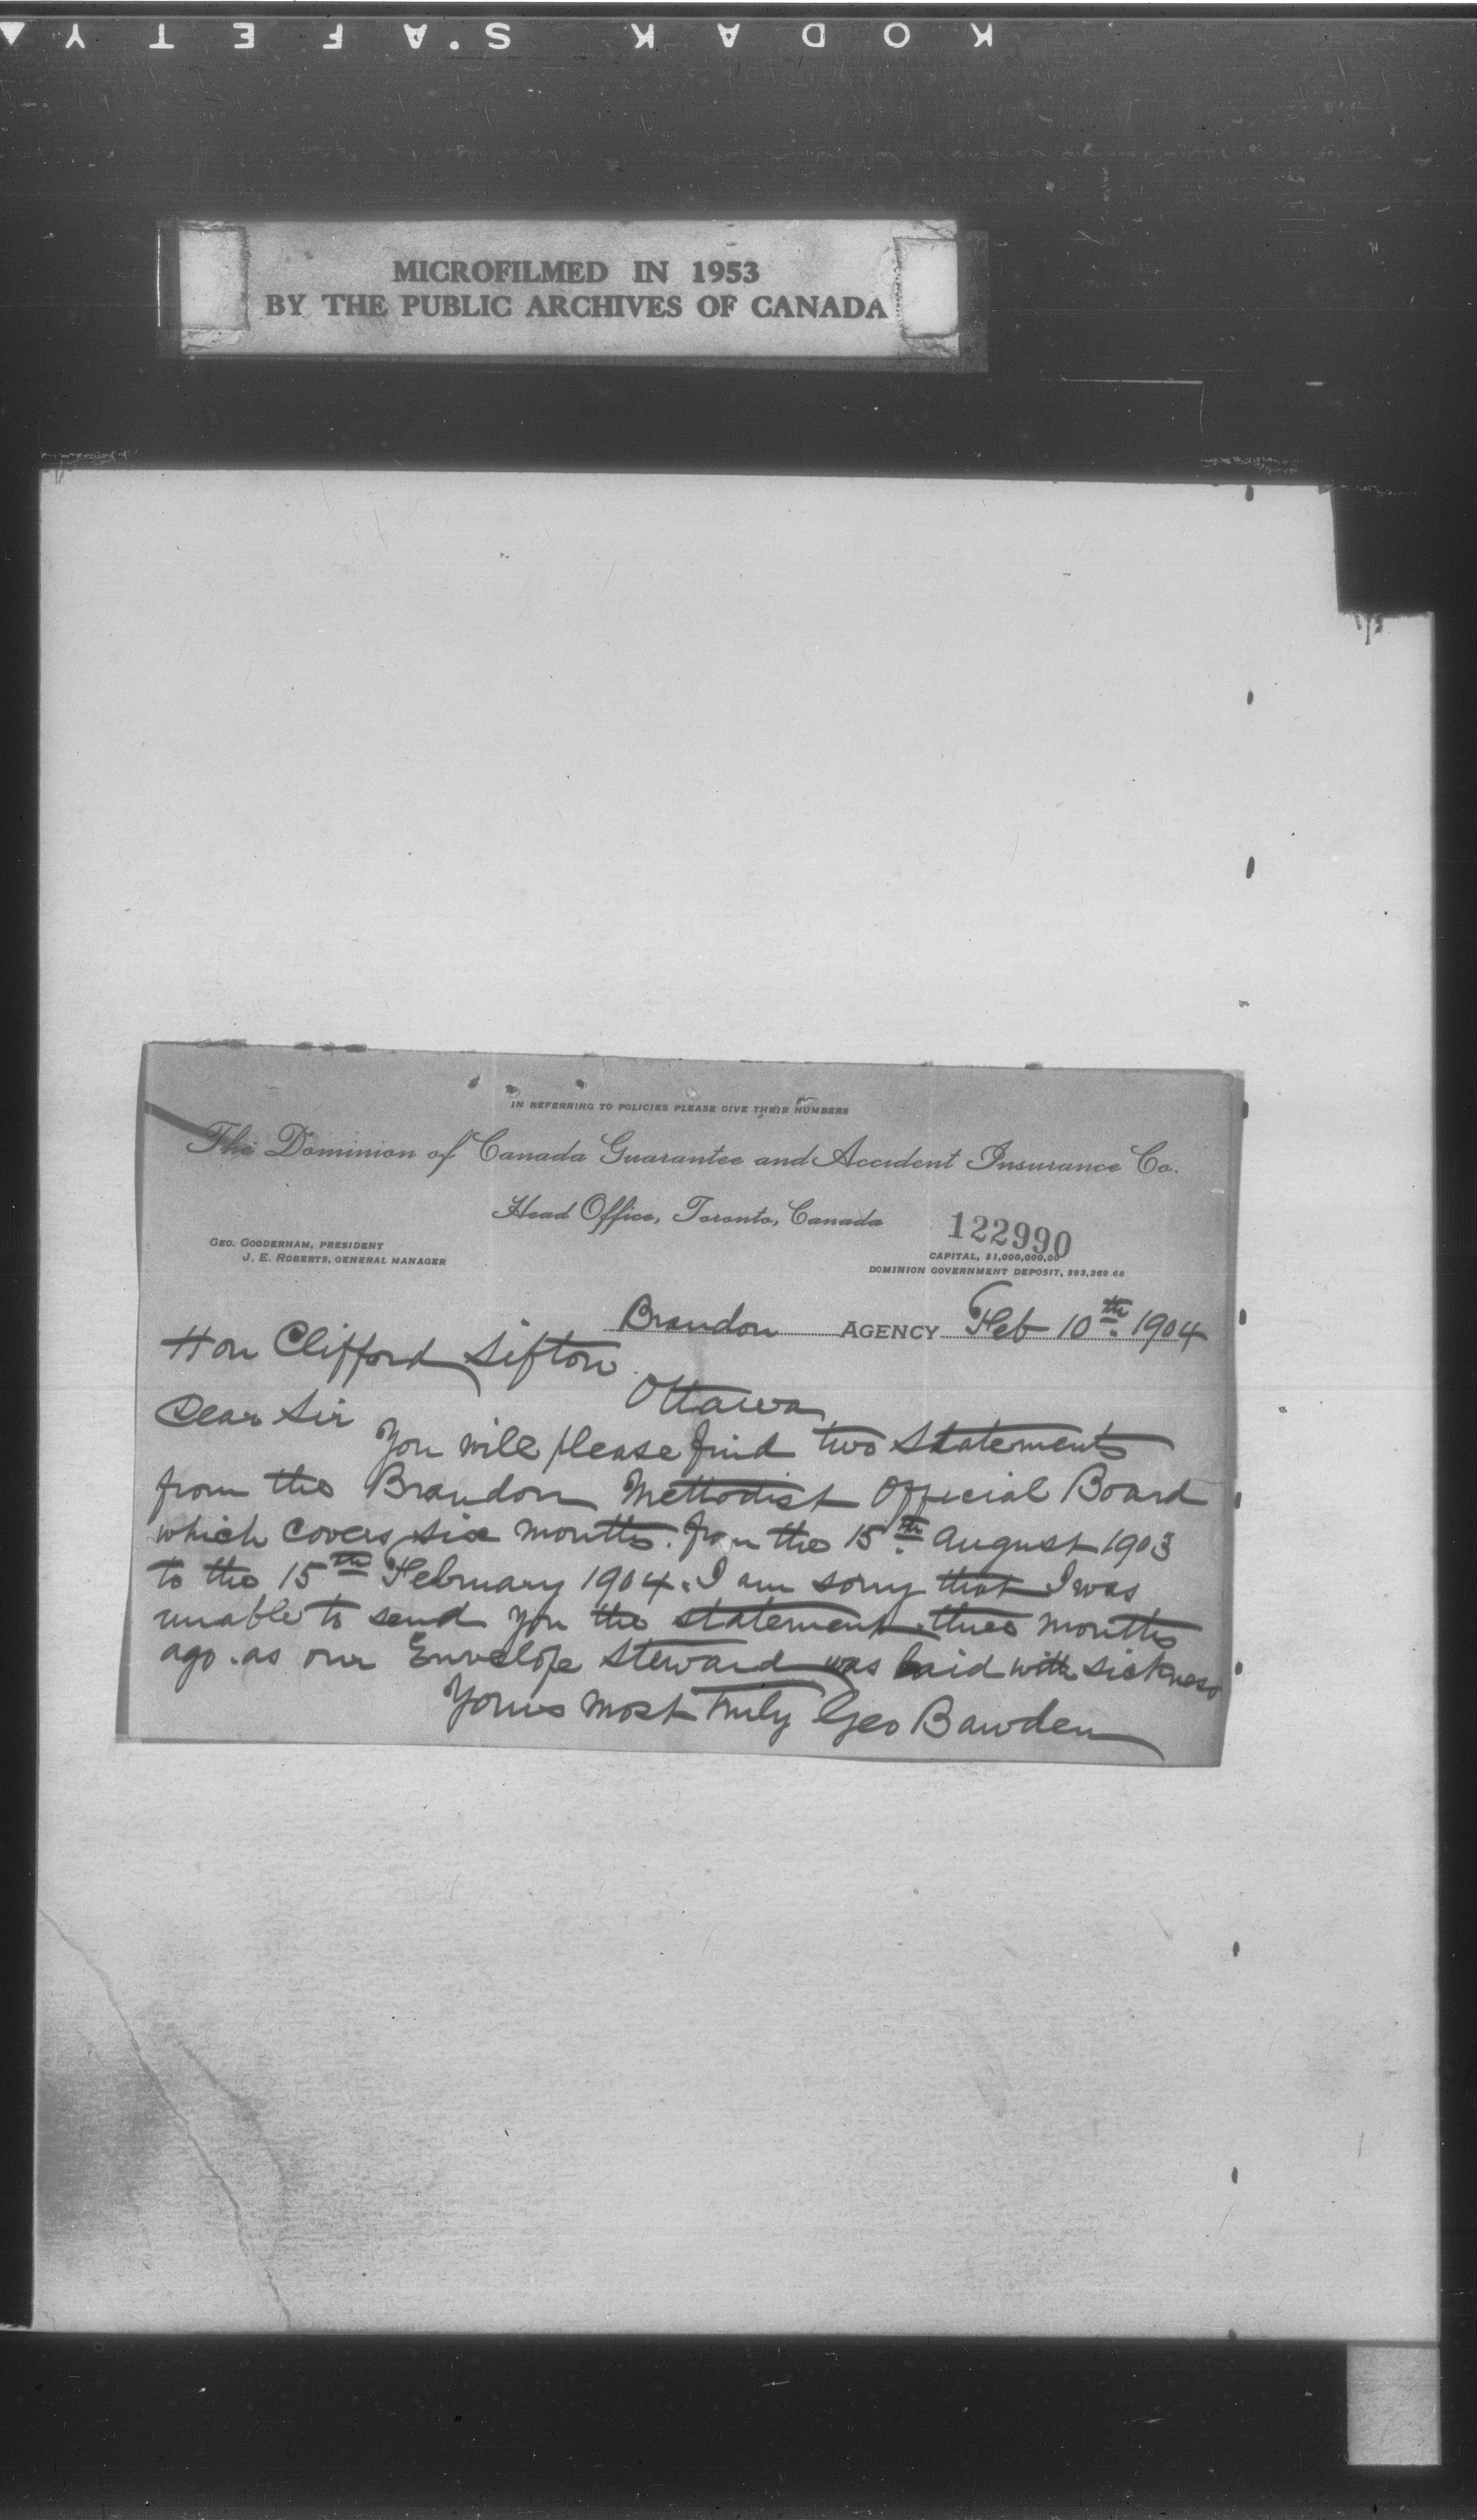 KODAK SAFETY
MICROFILMED IN 1953
BY THE PUBLIC ARCHIVES OF CANADA
IN REFERRING TO POLICIES PLEASE GIVE THEIR NUMBERS
The Dominion of Canada Guarantee and Accident Insurance Co.
Head Office, Toronto, Canada
122990
GEO. GOODERHAM, PRESIDENT
J. E. ROBERTS, GENERAL MANAGER
CAPITAL, $1,000,000,00
DOMINION GOVERNMENT DEPOSIT, $93,369.68
Brandon AGENCY Feb 10th. 1904
Hon Clifford Sifton
Ottawa
Dear Sir
You will please find two Statements
from the Brandon Methodist Official Board
which covers six months. from the 15th. August 1903
to the 15th February 1904. I am sorry that I was
unable to send you the statement three months
ago. as our Envelope Steward was laid with sickness
Yours most truly Geo Bawden